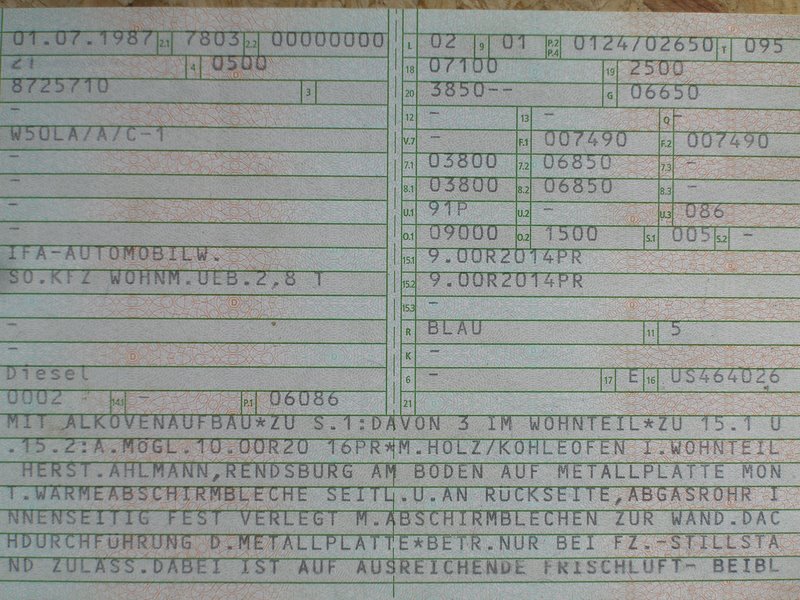 01.07.1987 2.1 7803 2.2 00000000
21 4 0500
8725710 3
-
W50LA/A/C-1
-
-
-
-
IFA-AUTOMOBILW.
SO.KFZ WOHNM.UEB.2,8 T
-
-
Diesel
0002 14.1 - P.1 06086
L 02 9 01 P.2 P.4 0124/02650 T 095
18 07100 19 2500
20 3850-- G 06650
12 - 13 - Q -
V.7 - F.1 007490 F.2 007490
7.1 03800 7.2 06850 7.3 -
8.1 03800 8.2 06850 8.3 -
U.1 91P U.2 - U.3 086
O.1 09000 O.2 1500 S.1 005 S.2 -
15.1 9.00R2014PR
15.2 9.00R2014PR
15.3 -
R BLAU 11 5
K -
6 - 17 E 16 US464026
21
MIT ALKOVENAUFBAU*ZU S.1:DAVON 3 IM WOHNTEIL*ZU 15.1 U
.15.2:A.MÖGL.10.00R20 16PR*M.HOLZ/KOHLEOFEN I.WOHNTEIL
HERST.AHLMANN,RENDSBURG AM BODEN AUF METALLPLATTE MON
T.WÄRMEABSCHIRMBLECHE SEITL.U.AN RÜCKSEITE,ABGASROHR I
NNENSEITIG FEST VERLEGT M.ABSCHIRMBLECHEN ZUR WAND.DAC
HDURCHFÜHRUNG D.METALLPLATTE*BETR.NUR BEI FZ.-STILLSTA
ND ZULÄSS.DABEI IST AUF AUSREICHENDE FRISCHLUFT- BEIBL